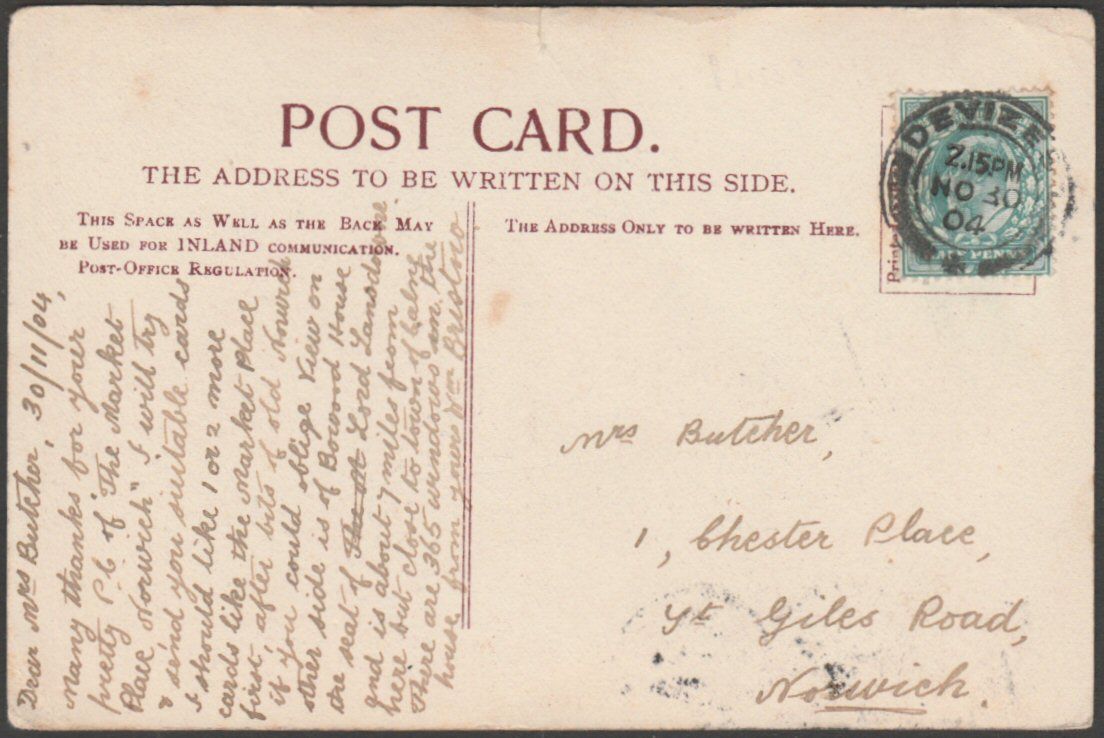 POST CARD.
THE ADDRESS TO BE WRITTEN ON THIS SIDE.
THIS SPACE AS WELL AS THE BACK MAY
BE USED FOR INLAND COMMUNICATION.
POST-OFFICE REGULATION.
THE ADDRESS ONLY TO BE WRITTEN HERE.
DEVIZE
2.15PM
NO 30
04
PENNY
Dear Mrs Butcher, 30/11/04,
many thanks for your
pretty P.C of "The Market
Place Norwich" I will try
& send you suitable cards
I should like 1 or 2 more
cards like the Market Place
first, after bits of old Norwich
if you could oblige View on
other side is of Bowood House
the seat of Lord Lansdowne
and is about 7 miles from
here but close to town of Calne
There are 365 windows in the
house from yours Wm Bristow
Mrs Butcher,
1, Chester Place,
St Giles Road,
Norwich.